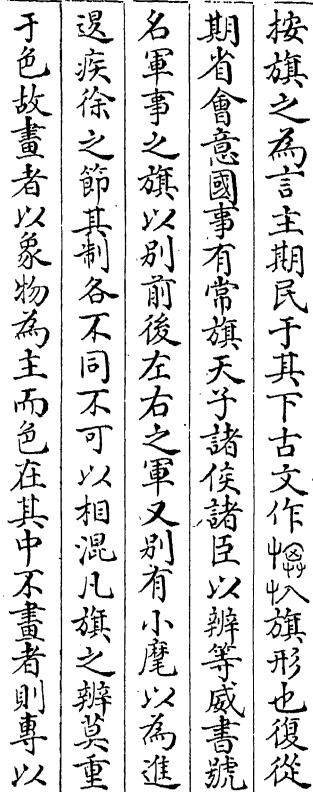 按旗之為言主期民于其下古文作㫃旗形也復從
期省會意國事有常旗天子諸侯諸臣以辨等威書號
名軍事之旗以別前後左右之軍又別有小麾以為進
退疾徐之節其制各不同不可以相混凡旗之辨莫重
于色故畫者以象物為主而色在其中不畫者則專以